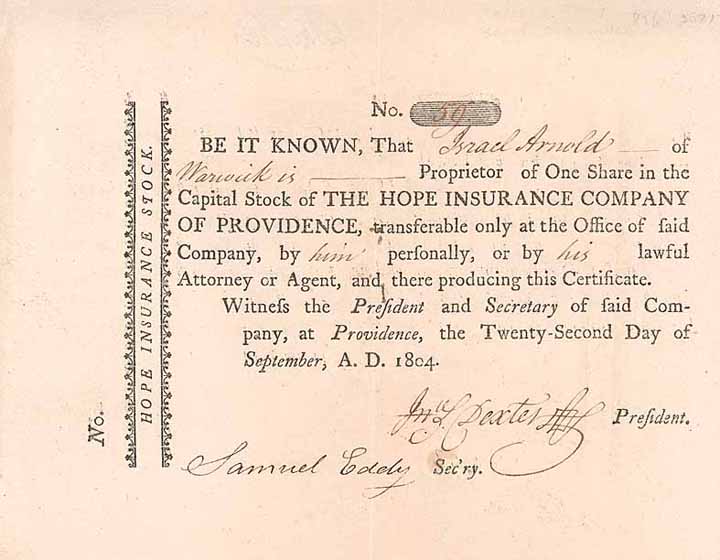 No. 59
BE IT KNOWN, That Israel Arnold of
Warwick is Proprietor of One Share in the
Capital Stock of THE HOPE INSURANCE COMPANY
OF PROVIDENCE, transferable only at the Office of ſaid
Company, by him perſonally, or by his lawful
Attorney or Agent, and there producing this Certificate.
Witneſs the Preſident and Secretary of ſaid Com-
pany, at Providence, the Twenty-Second Day of
September, A. D. 1804.
Dexter Preſident.
Samuel Eddy Sec'ry.
HOPE INSURANCE STOCK.
No.